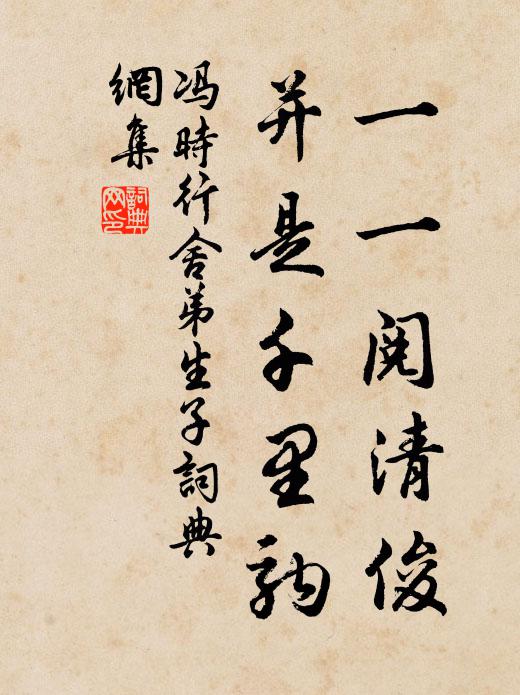 一一閱清俊
并是千里駒
馮時行舍弟生子詞典
網集
詞典
网印